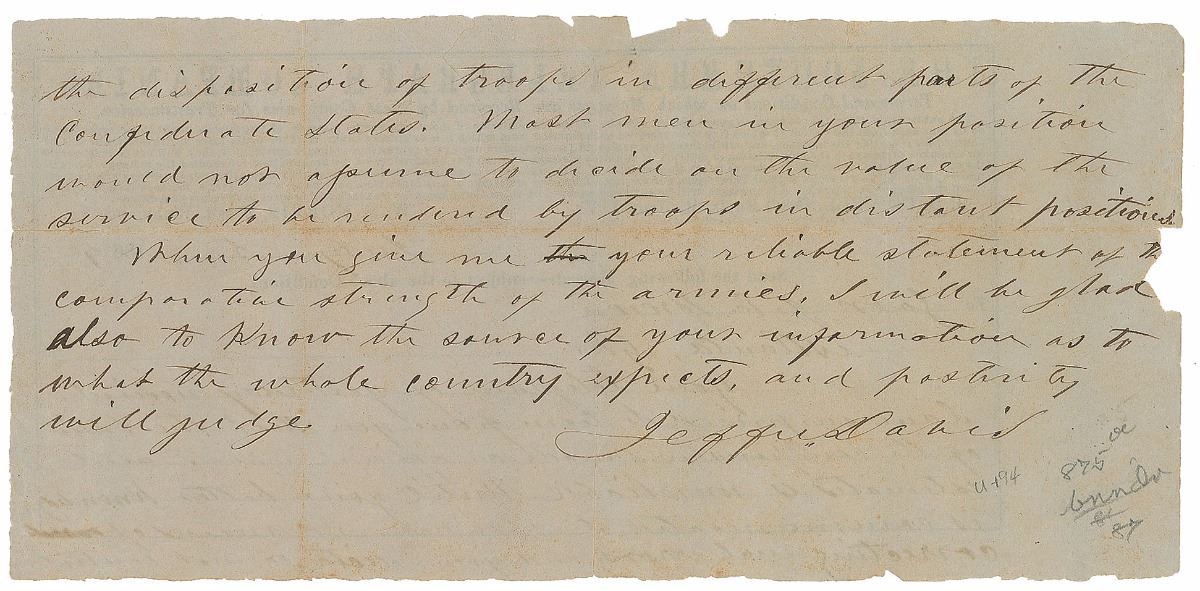 the disposition of troops in different parts of the
Confederate States. Most men in your position
would not assume to decide on the value of the
service to be rendered by troops in distant positions.
When you give me the your reliable statement of th
comparative strength of the armies, I will be glad
also to know the source of your information as to
what the whole country expects, and posterity
will judge.
Jeffn. Davis
875
87